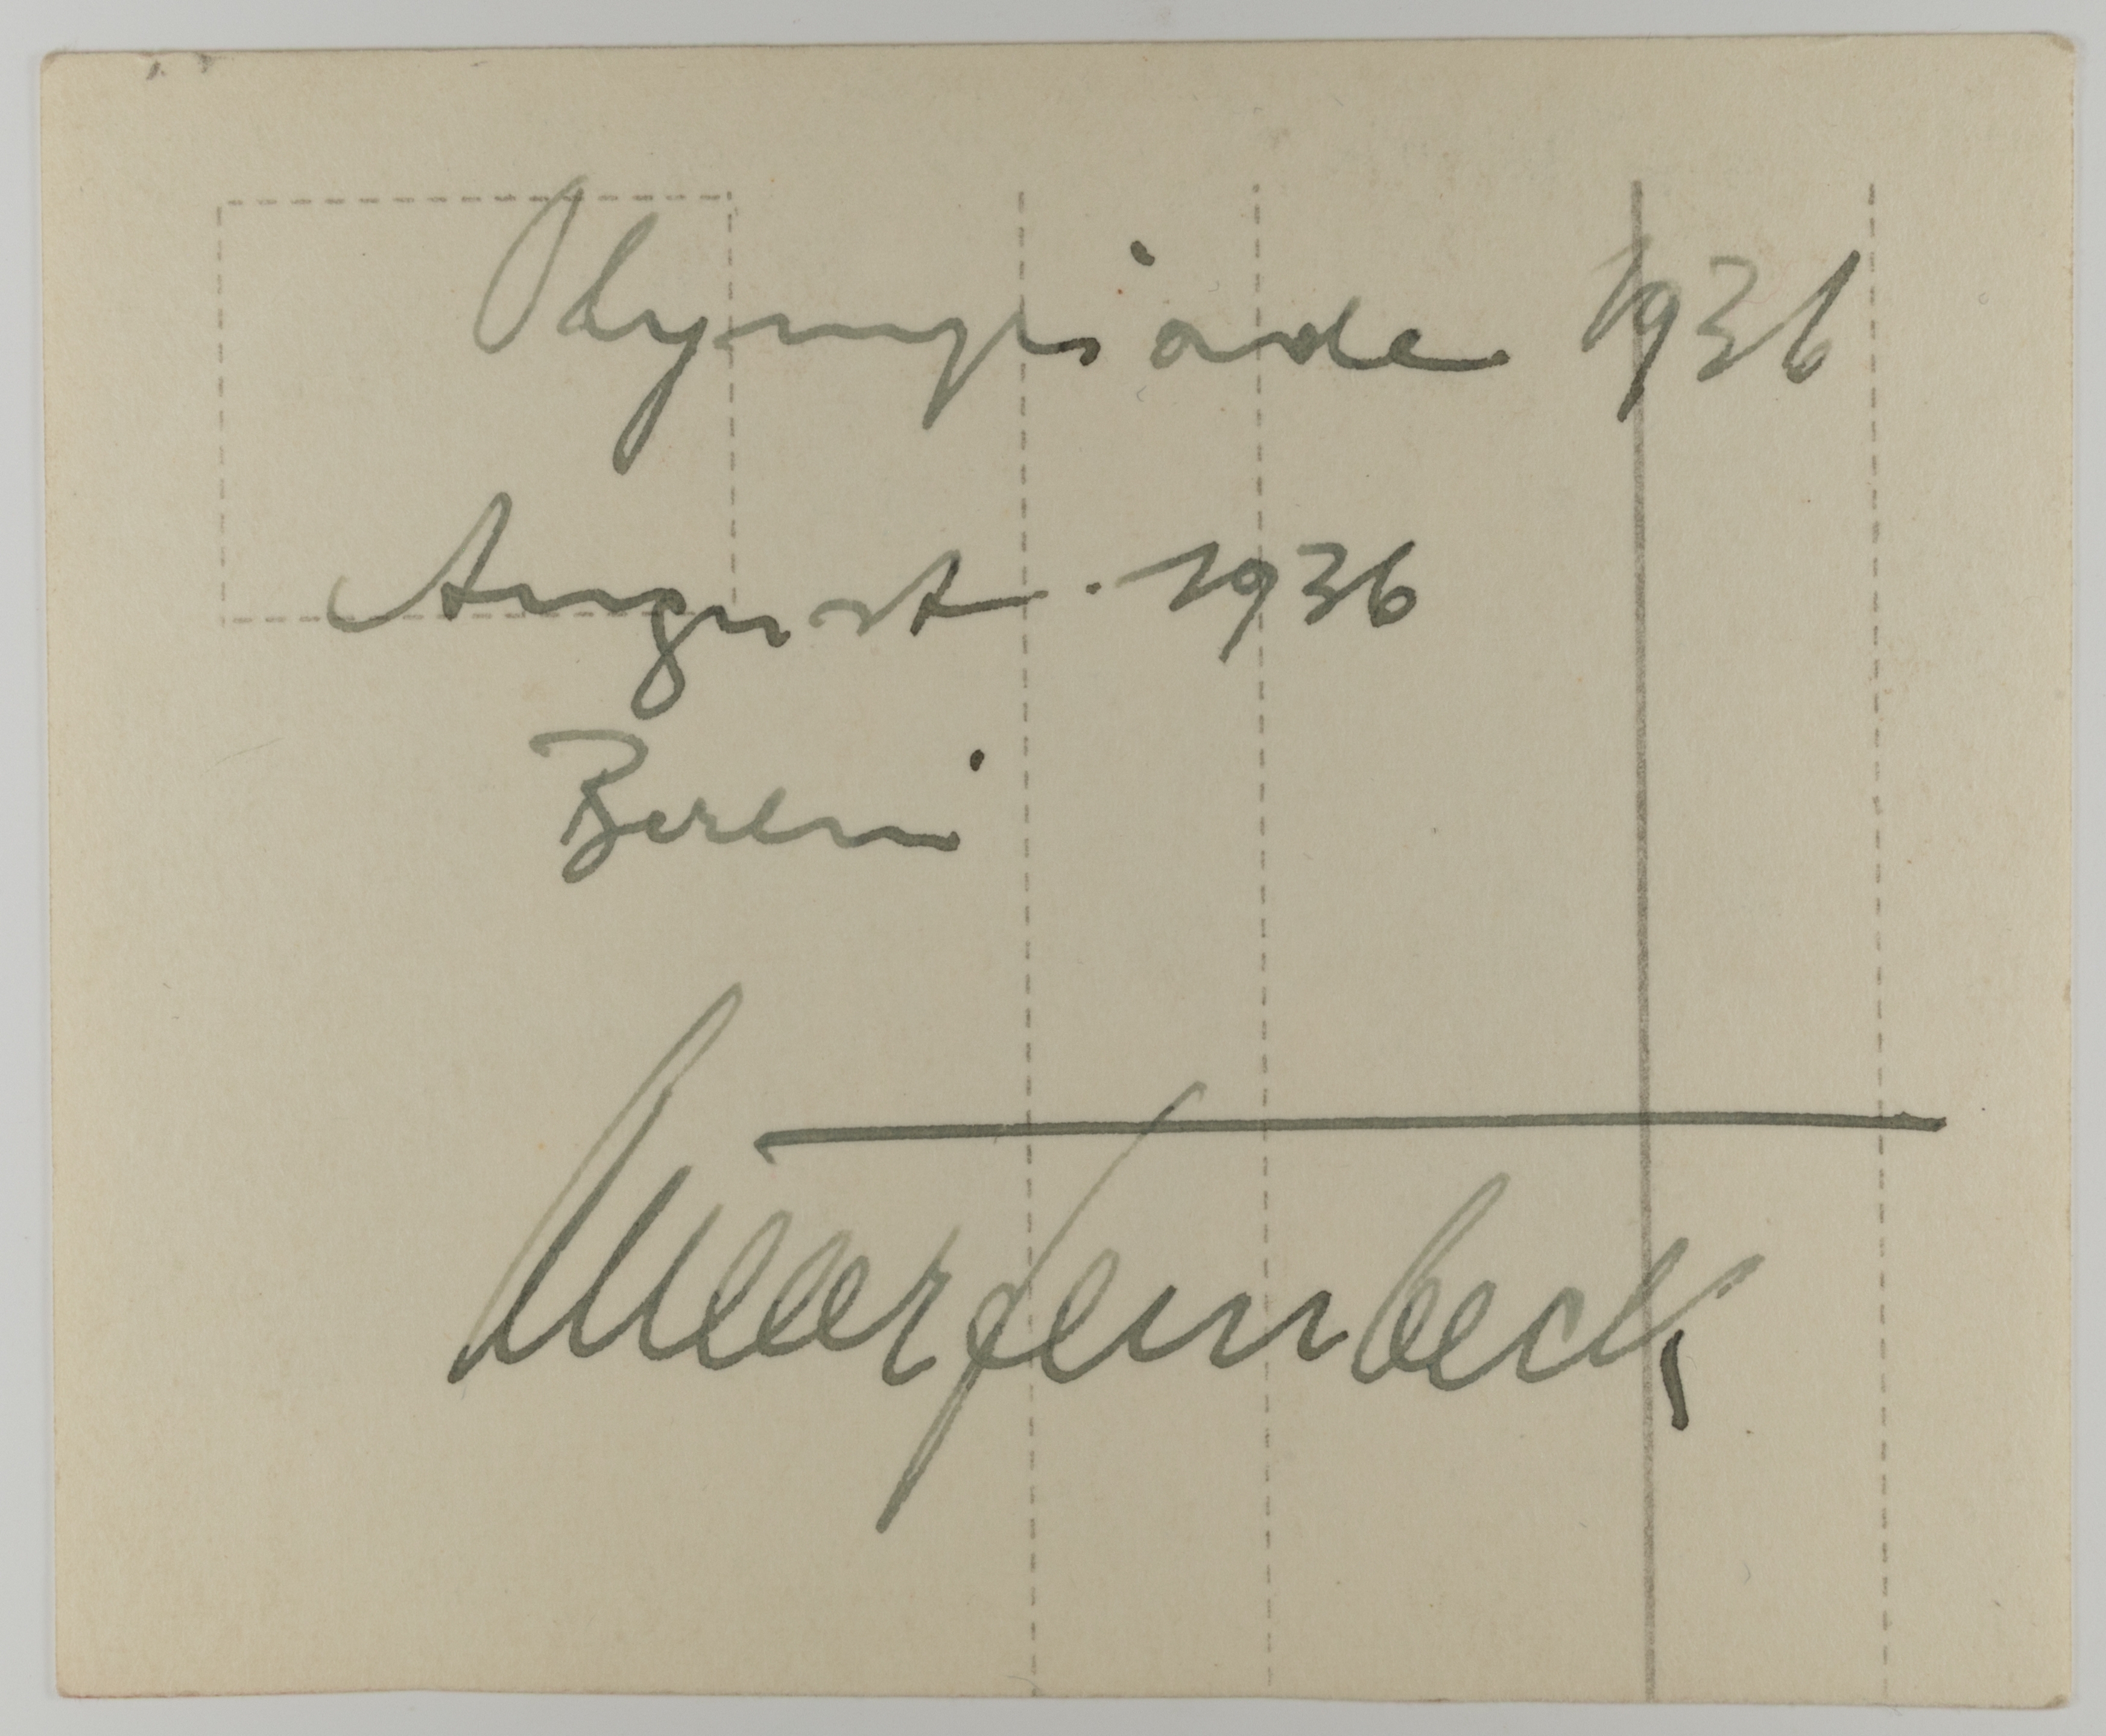 Olympiade 1936
August 1936
Berlin